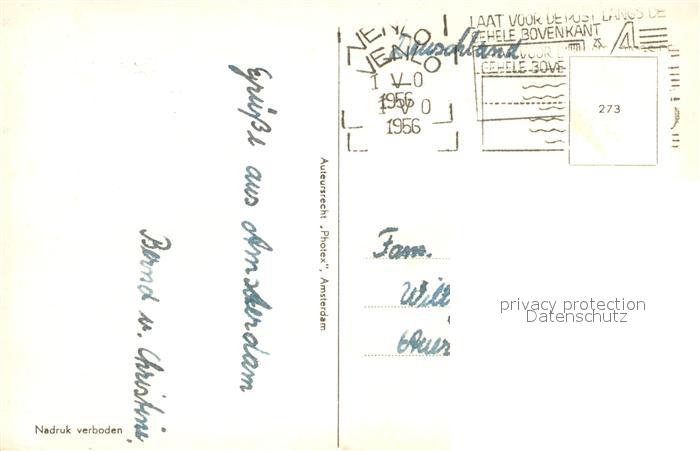 Grüße aus Amsterdam
Bernd u. Christine,
Nadruk verboden
Auteursrecht „Photex", Amsterdam
VENLO
VENLO
1 V O
1956
1 V O
1956
LAAT VOOR DE POST LANGS DE
GEHELE BOVENKANT
VOOR
GEHELE BOVE
Deuschland
273
Fam.
Will
privacy protection
Datenschutz